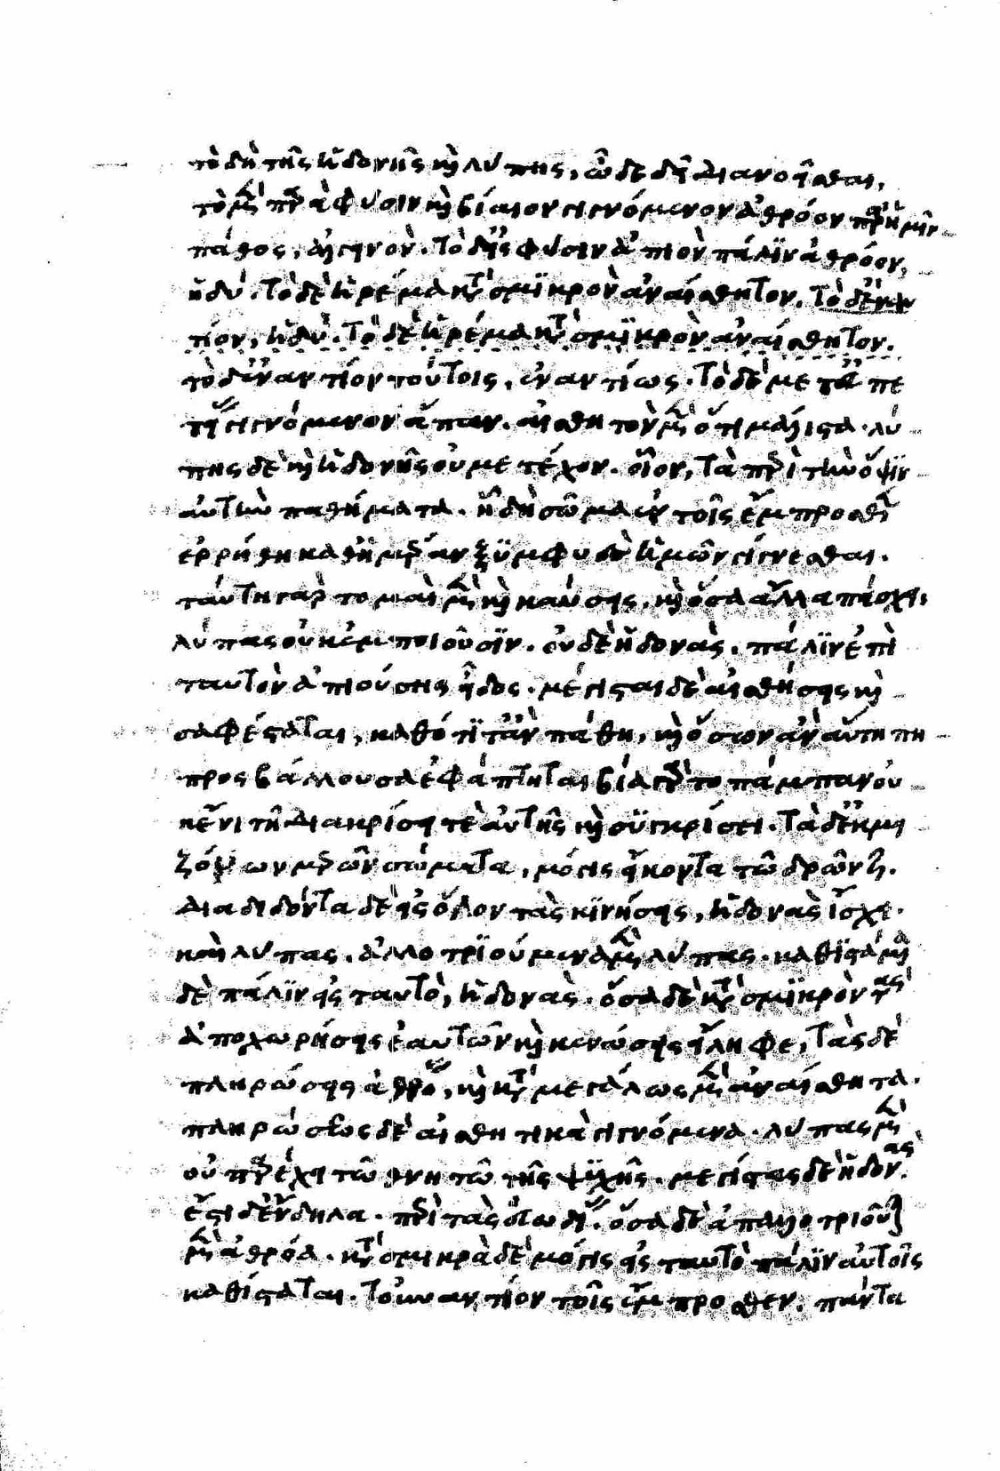 τὸ δὴ τῆς ἡδονῆς καὶ λύπης, ὧδε δεῖ διανοεῖσθαι.
τὸ μὲν παρὰ φύσιν καὶ βίαιον γιγνόμενον ἀθρόον παρ' ἡμῖν
πάθος, ἀλγεινόν. τὸ δ' εἰς φύσιν ἀπιὸν πάλιν ἀθρόον,
ἡδύ. τὸ δὲ ἠρέμα καὶ κατὰ σμικρὸν ἀναίσθητον. τὸ δ' ἐν
πίον, ἡδύ. τὸ δὲ ἠρέμα κατὰ σμικρὸν ἀναίσθητον.
τὸ δ' ἐναντίον τούτοις, ἐναντίως. τὸ δὲ μετ' εὐπε
τείας γιγνόμενον ἅπαν. αἰσθητὸν μὲν ὅτι μάλιστα. λύ
πης δὲ καὶ ἡδονῆς οὐ μετέχον. οἷον, τὰ περὶ τὴν ὄψιν
αὐτὴν παθήματα. ἣ δὴ σῶμα ἐν τοῖς ἔμπροσθεν
ἐρρήθη καθ' ἡμέραν ξυμφυὲς ἡμῶν γίγνεσθαι.
ταύτῃ γὰρ τομαὶ μὲν καὶ καύσεις, καὶ ὅσα ἄλλα πάσχει,
λύπας οὐκ ἐμποιοῦσιν. οὐδὲ ἡδονὰς. πάλιν ἐπὶ
ταυτὸν ἀπιούσης εἶδος. μέγισται δὲ αἰσθήσεις καὶ
σαφέσταται, καθότι τ' ἂν πάθῃ, καὶ ὅσων ἂν αὐτή πῃ
προσβάλλουσα ἐφάπτηται βία γὰρ τὸ πάμπαν οὐ
κ ἔνι τῇ διακρίσει τε αὐτῆς καὶ συγκρίσει. τὰ δ' ἐκ μει
ζόνων μερῶν σώματα, μόγις εἴκοντα τῷ δρῶντι.
διαδιδόντα δὲ εἰς ὅλον τὰς κινήσεις, ἡδονὰς ἴσχει.
καὶ λύπας. ἀλλοτριούμενα μὲν λύπας. καθιστάμενα
δὲ πάλιν εἰς ταυτὸ, ἡδονὰς. ὅσα δὲ κατὰ σμικρὸν τὰς
ἀποχωρήσεις ἑαυτῶν καὶ κενώσεις εἴληφε, τὰς δὲ
πληρώσεις ἀθρόας, καὶ κατὰ μεγάλως μὲν ἀναίσθητα.
πληρώσεως δὲ αἰσθητικὰ γιγνόμενα. λύπας μὲν
οὐ παρέχει τῷ θνητῷ τῆς ψυχῆς. μεγίστας δὲ ἡδονάς.
ἔστι δ' ἔνδηλα. περὶ τὰς εὐωδίας. ὅσα δὲ ἀπαλλοτριοῦται
μὲν ἀθρόα. κατὰ σμικρὰ δὲ μόγις εἰς ταυτὸ πάλιν αὑτοῖς
καθίσταται. τοὐναντίον τοῖς ἔμπροσθεν. πάντα